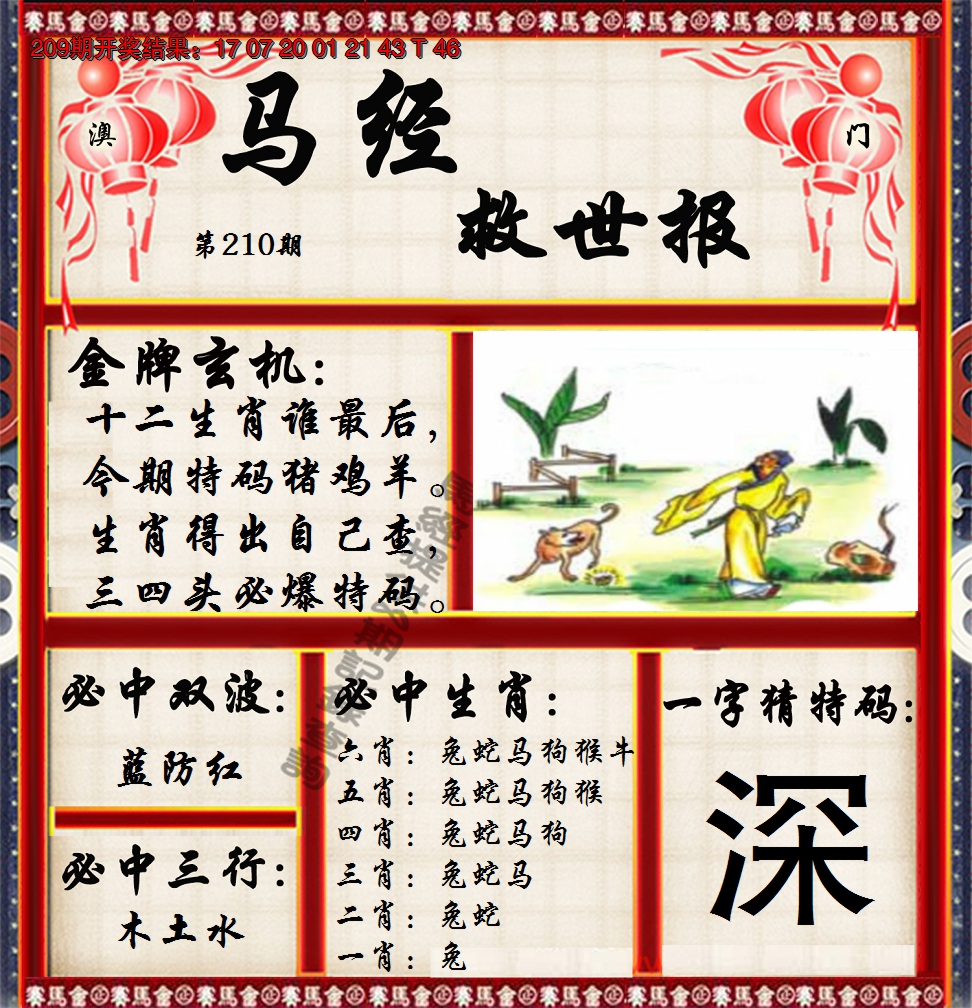 209期开奖结果：17 07 20 01 21 43 T 46
澳
门
马经
救世报
第210期
金牌玄机：
十二生肖谁最后，
今期特码猪鸡羊。
生肖得出自己查，
三四头必爆特码。
必中双波：
蓝防红
必中三行：
木土水
必中生肖：
六肖：兔蛇马狗猴牛
五肖：兔蛇马狗猴
四肖：兔蛇马狗
三肖：兔蛇马
二肖：兔蛇
一肖：兔
一字猜特码：
深